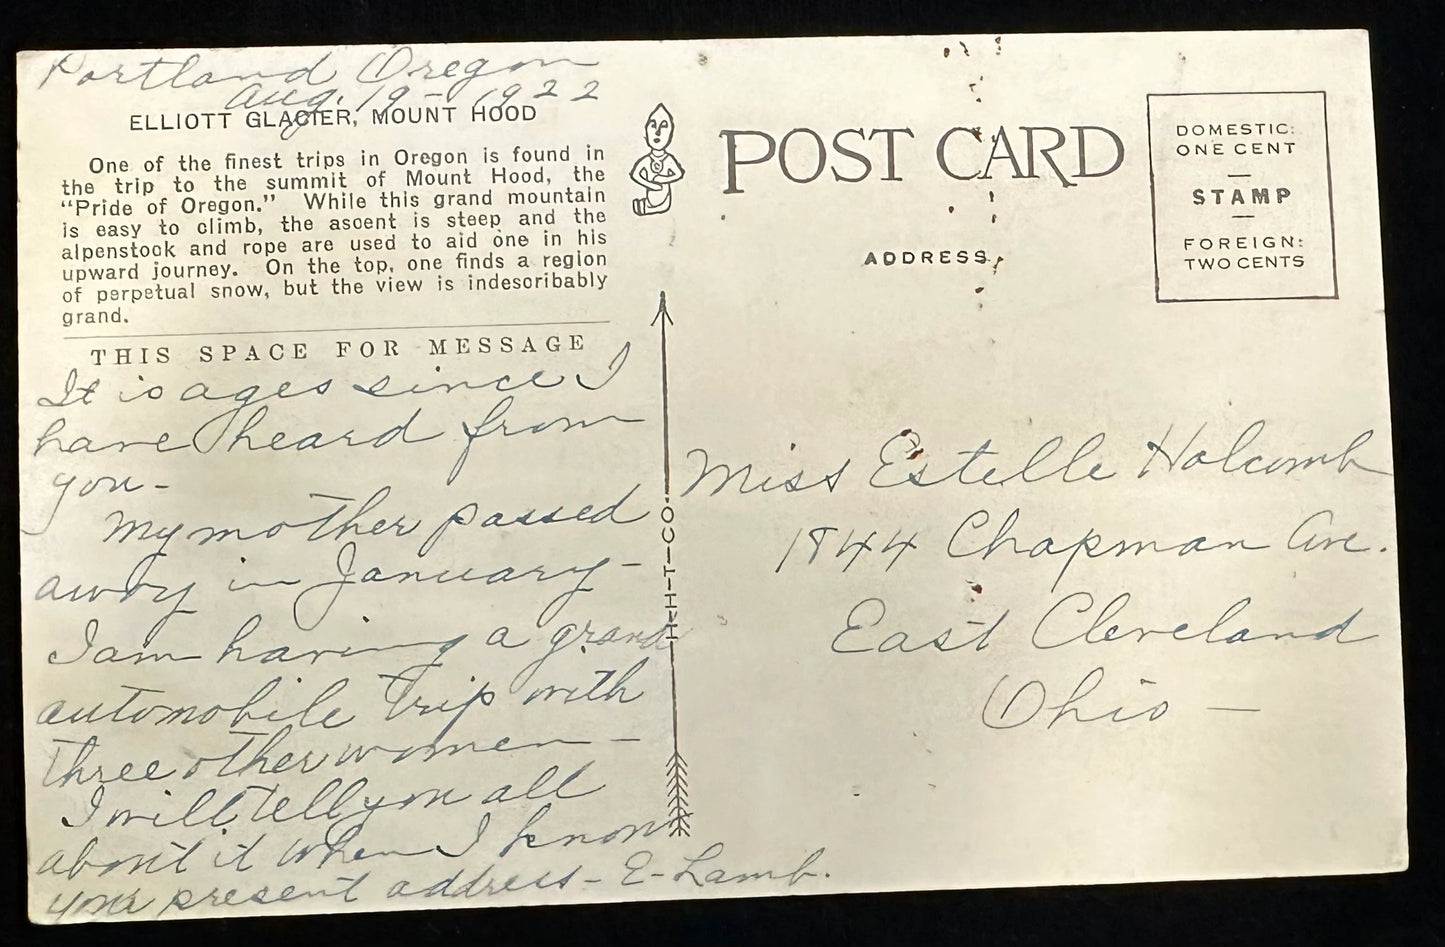 Portland Oregon
Aug. 19 - 1922
ELLIOTT GLACIER, MOUNT HOOD
One of the finest trips in Oregon is found in
the trip to the summit of Mount Hood, the
“Pride of Oregon.” While this grand mountain
is easy to climb, the ascent is steep and the
alpenstock and rope are used to aid one in his
upward journey. On the top, one finds a region
of perpetual snow, but the view is indescribably
grand.
THIS SPACE FOR MESSAGE
It is ages since I
have heard from
you -
My mother passed
away in January -
I am having a grand
automobile trip with
three other women -
I will tell you all
about it when I know
your present address - E - Lamb.
HI-T-CO.
POST CARD
ADDRESS
DOMESTIC:
ONE CENT
STAMP
FOREIGN:
TWO CENTS
Miss Estelle Holcomb
1844 Chapman Ave.
East Cleveland
Ohio -